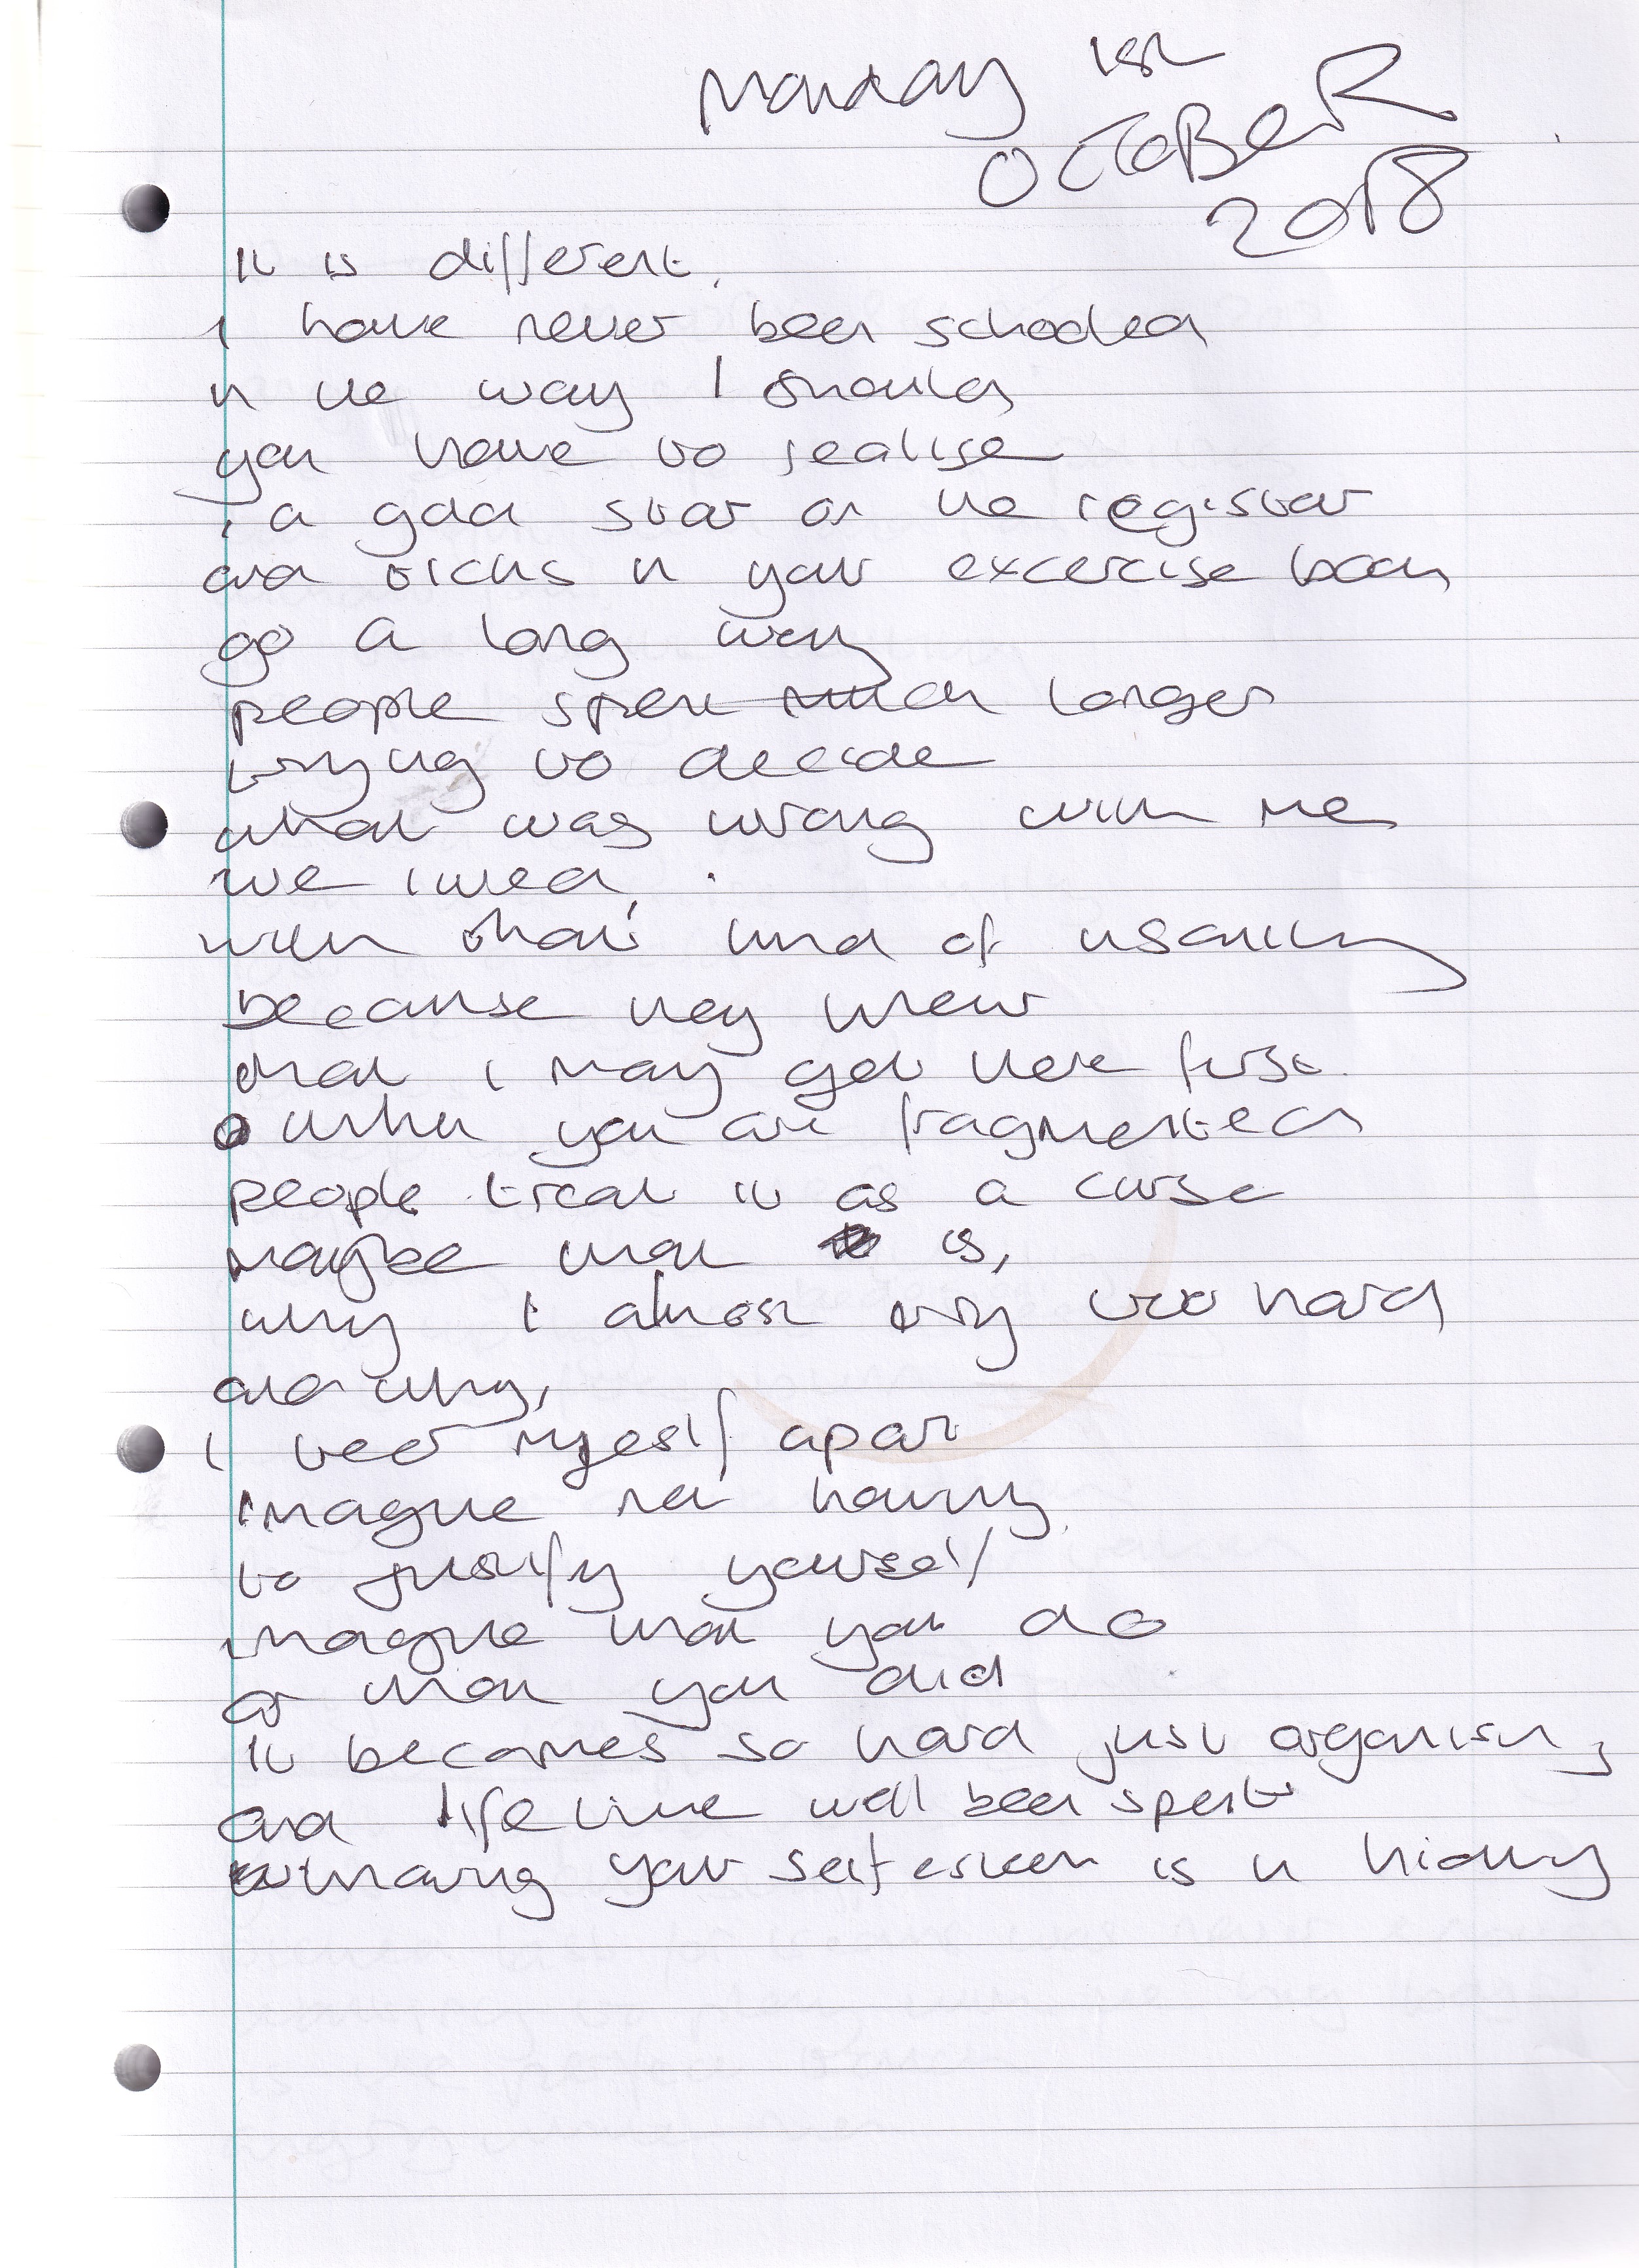 Monday 1st
OCTOBER
2018
It is different,
I have never been schooled
in the way I should
you have to realise
, a gold star on the registar
and ticks in your excercise book
go a long way
people spent much longer
trying to decide
what was wrong with me
we lived,
with that kind of insanity
because they knew
that I may get there first.
when you are fragmented
people treat it as a curse
maybe that is,
why I almost try too hard
and why,
I tear myself apart
imagine not having
to justify yourself
imagine that you do
or that you did
It becomes so hard just organising
and life time well been spent
your self esteem is in hiding